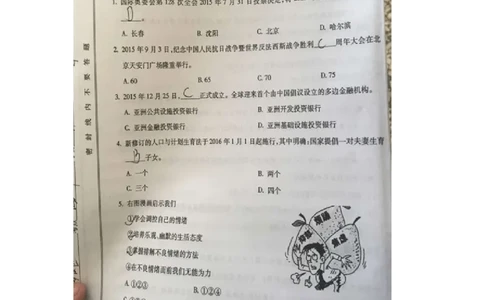 1. 国际奥委会第 128 次全会 2015 年 7 月 31 日投票决定,
A. 长春 B. 沈阳 C. 北京 D. 哈尔滨
2. 2015 年 9 月 3 日,纪念中国人民抗日战争暨世界反法西斯战争胜利 C 周年大会在北
京天安门广场隆重举行。
A. 60 B. 65 C. 70 D. 75
3. 2015 年 12 月 25 日, C 正式成立。全球迎来首个由中国倡议设立的多边金融机构。
A. 亚洲公共设施投资银行 B. 亚洲开发投资银行
C. 亚洲金融投资银行 D. 亚洲基础设施投资银行
4. 新修订的人口与计划生育法于 2016 年 1 月 1 日起施行,其中明确:国家提倡一对夫妻生育
B 子女。
A. 一个 B. 两个
C. 三个 D. 四个
5. 右图漫画启示我们
①学会调控自己的情绪
②培养乐观、幽默的生活态度
③掌握排解不良情绪的方法
④在不良情绪面前我们无能为力
A. ①②③ B. ①②④
密封线内不要答题